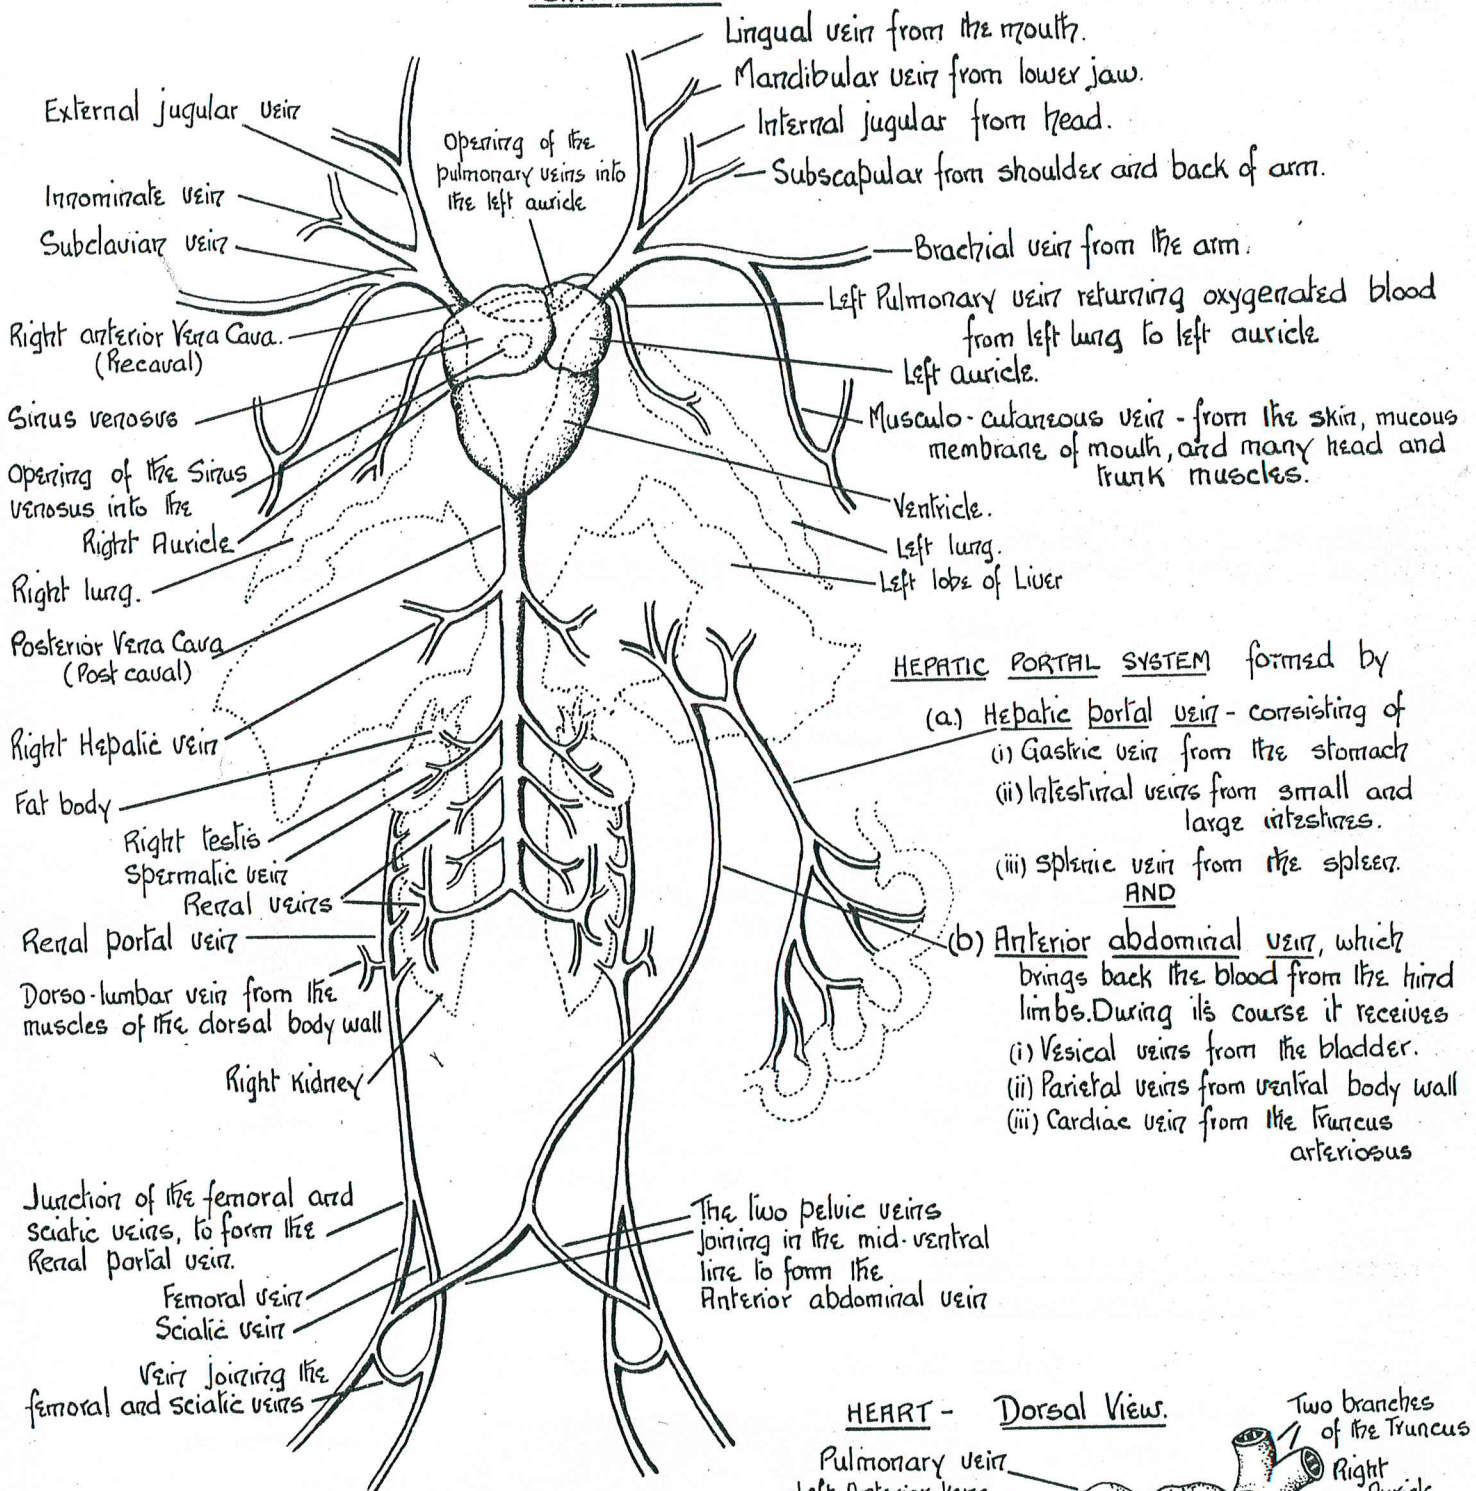 External jugular vein
Innominate vein
Subclavian vein
Right anterior Vena Cava.
(Precaval)
Sinus venosus
Opening of the Sinus
venosus into the
Right Auricle
Right lung.
Posterior Vena Cava
(Post caval)
Right Hepatic vein
Fat body
Right testis
Spermatic vein
Renal veins
Renal portal vein
Dorso-lumbar vein from the
muscles of the dorsal body wall
Right Kidney
Junction of the femoral and
sciatic veins, to form the
Renal portal vein.
Femoral vein
Sciatic vein
Vein joining the
femoral and sciatic veins
Opening of the
pulmonary veins into
the left auricle
Lingual vein from the mouth.
Mandibular vein from lower jaw.
Internal jugular from head.
Subscapular from shoulder and back of arm.
Brachial vein from the arm.
Left Pulmonary vein returning oxygenated blood
from left lung to left auricle
Left auricle.
Musculo-cutaneous vein - from the skin, mucous
membrane of mouth, and many head and
trunk muscles.
Ventricle.
Left lung.
Left lobe of Liver
HEPATIC PORTAL SYSTEM formed by
(a.) Hepatic portal vein - consisting of
(i) Gastric vein from the stomach
(ii) Intestinal veins from small and
large intestines.
(iii) splenic vein from the spleen.
AND
(b) Anterior abdominal vein, which
brings back the blood from the hind
limbs. During its course it receives
(i) Vesical veins from the bladder.
(ii) Parietal veins from ventral body wall
(iii) Cardiac vein from the truncus
arteriosus
The two pelvic veins
joining in the mid-ventral
line to form the
Anterior abdominal vein
HEART - Dorsal View.
Two branches
of the Truncus
Pulmonary vein
Right